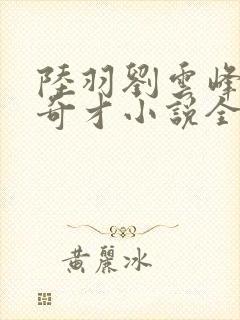 陸羽劉雲峰
奇才小說全
黃麗冰